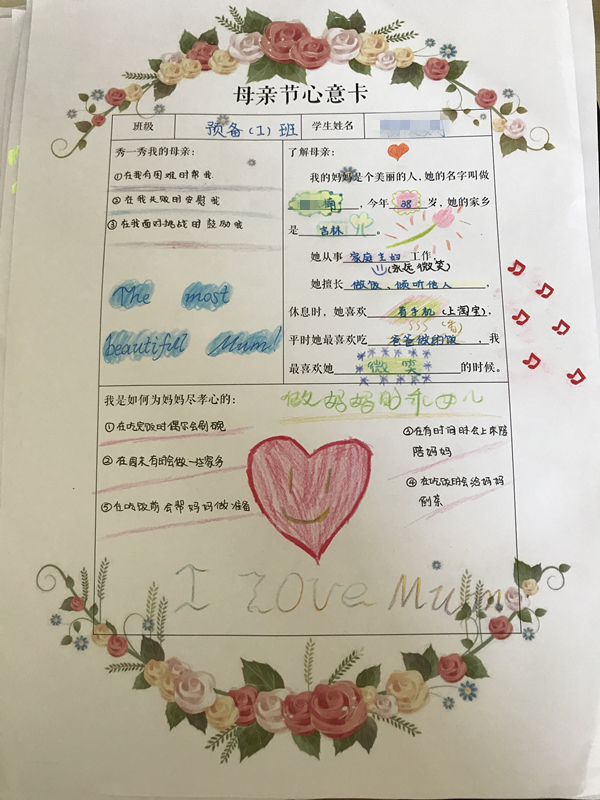 母亲节心意卡
班级 预备(1)班 学生姓名
秀一秀我的母亲:
①在我有困难时帮我
②在我失败时安慰我
③在我面对挑战时鼓励我
The most
beautiful Mum!
了解母亲:
我的妈妈是个美丽的人,她的名字叫做
,今年 38 岁,她的家乡
是 吉林 。
她从事 家庭主妇 工作,
(永远微笑)
她擅长 做饭、倾听他人 ,
休息时,她喜欢 看手机(上淘宝),
(香)
平时她最喜欢吃 爸爸做的饭 ,我
最喜欢她 微笑 的时候。
我是如何为妈妈尽孝心的:
做妈妈的乖女儿
①在吃完饭时偶尔会刷碗
②在周末有时会做一些家务
③在有时间时会上来陪
陪妈妈
④在吃饭时会给妈妈
⑤在吃饭前会帮妈妈做准备
I Love Mum